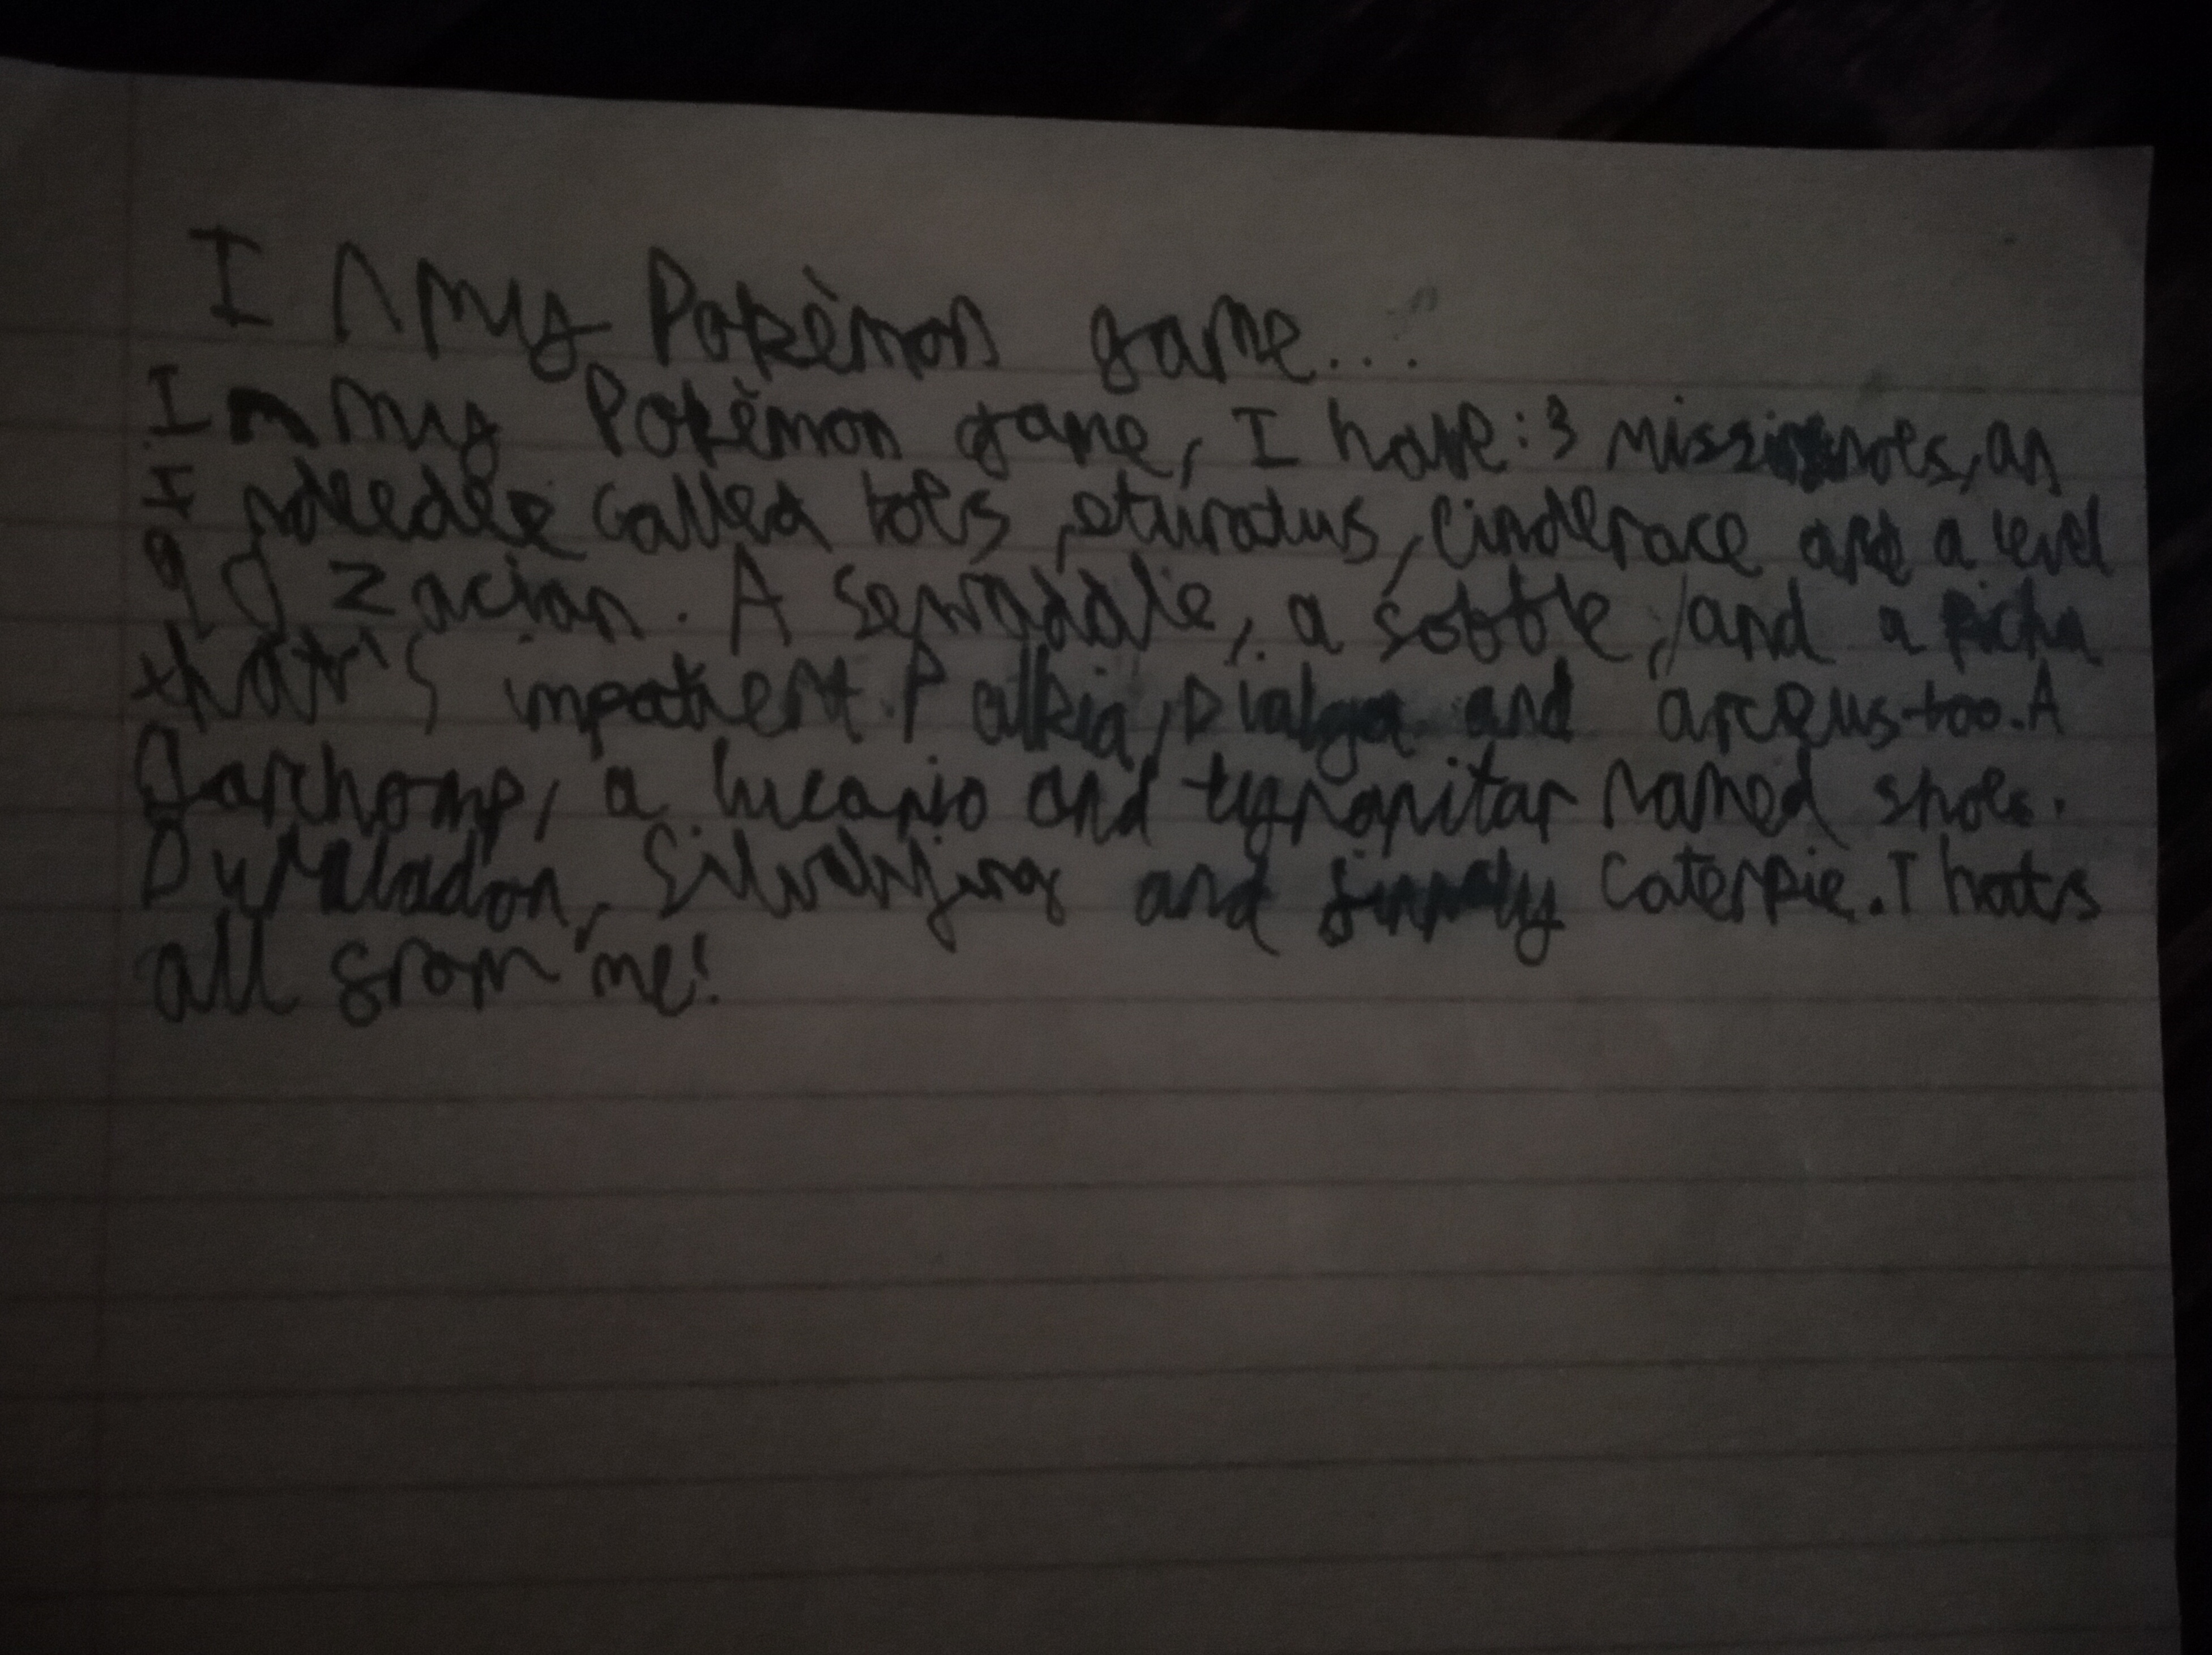 In my Pokèmon game...
In my Pokěmon game, I have: 3 missingnoes, an
Indeedee called toes, eturatus, Cinderace and a level
90 zacian. A Sewaddle, a sobble, and a Pichu
that's impatient. Palkia, Dialga and arceus too. A
Garchomp, a lucario and tyranitar named shoes.
Duraladon, Silvally and Caterpie. Thats
all from me!